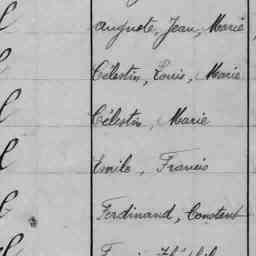 Auguste, Jean, Marie
Célestin, Louis, Marie
Célestin, Marie
Emile, Francis
Ferdinand, Constant